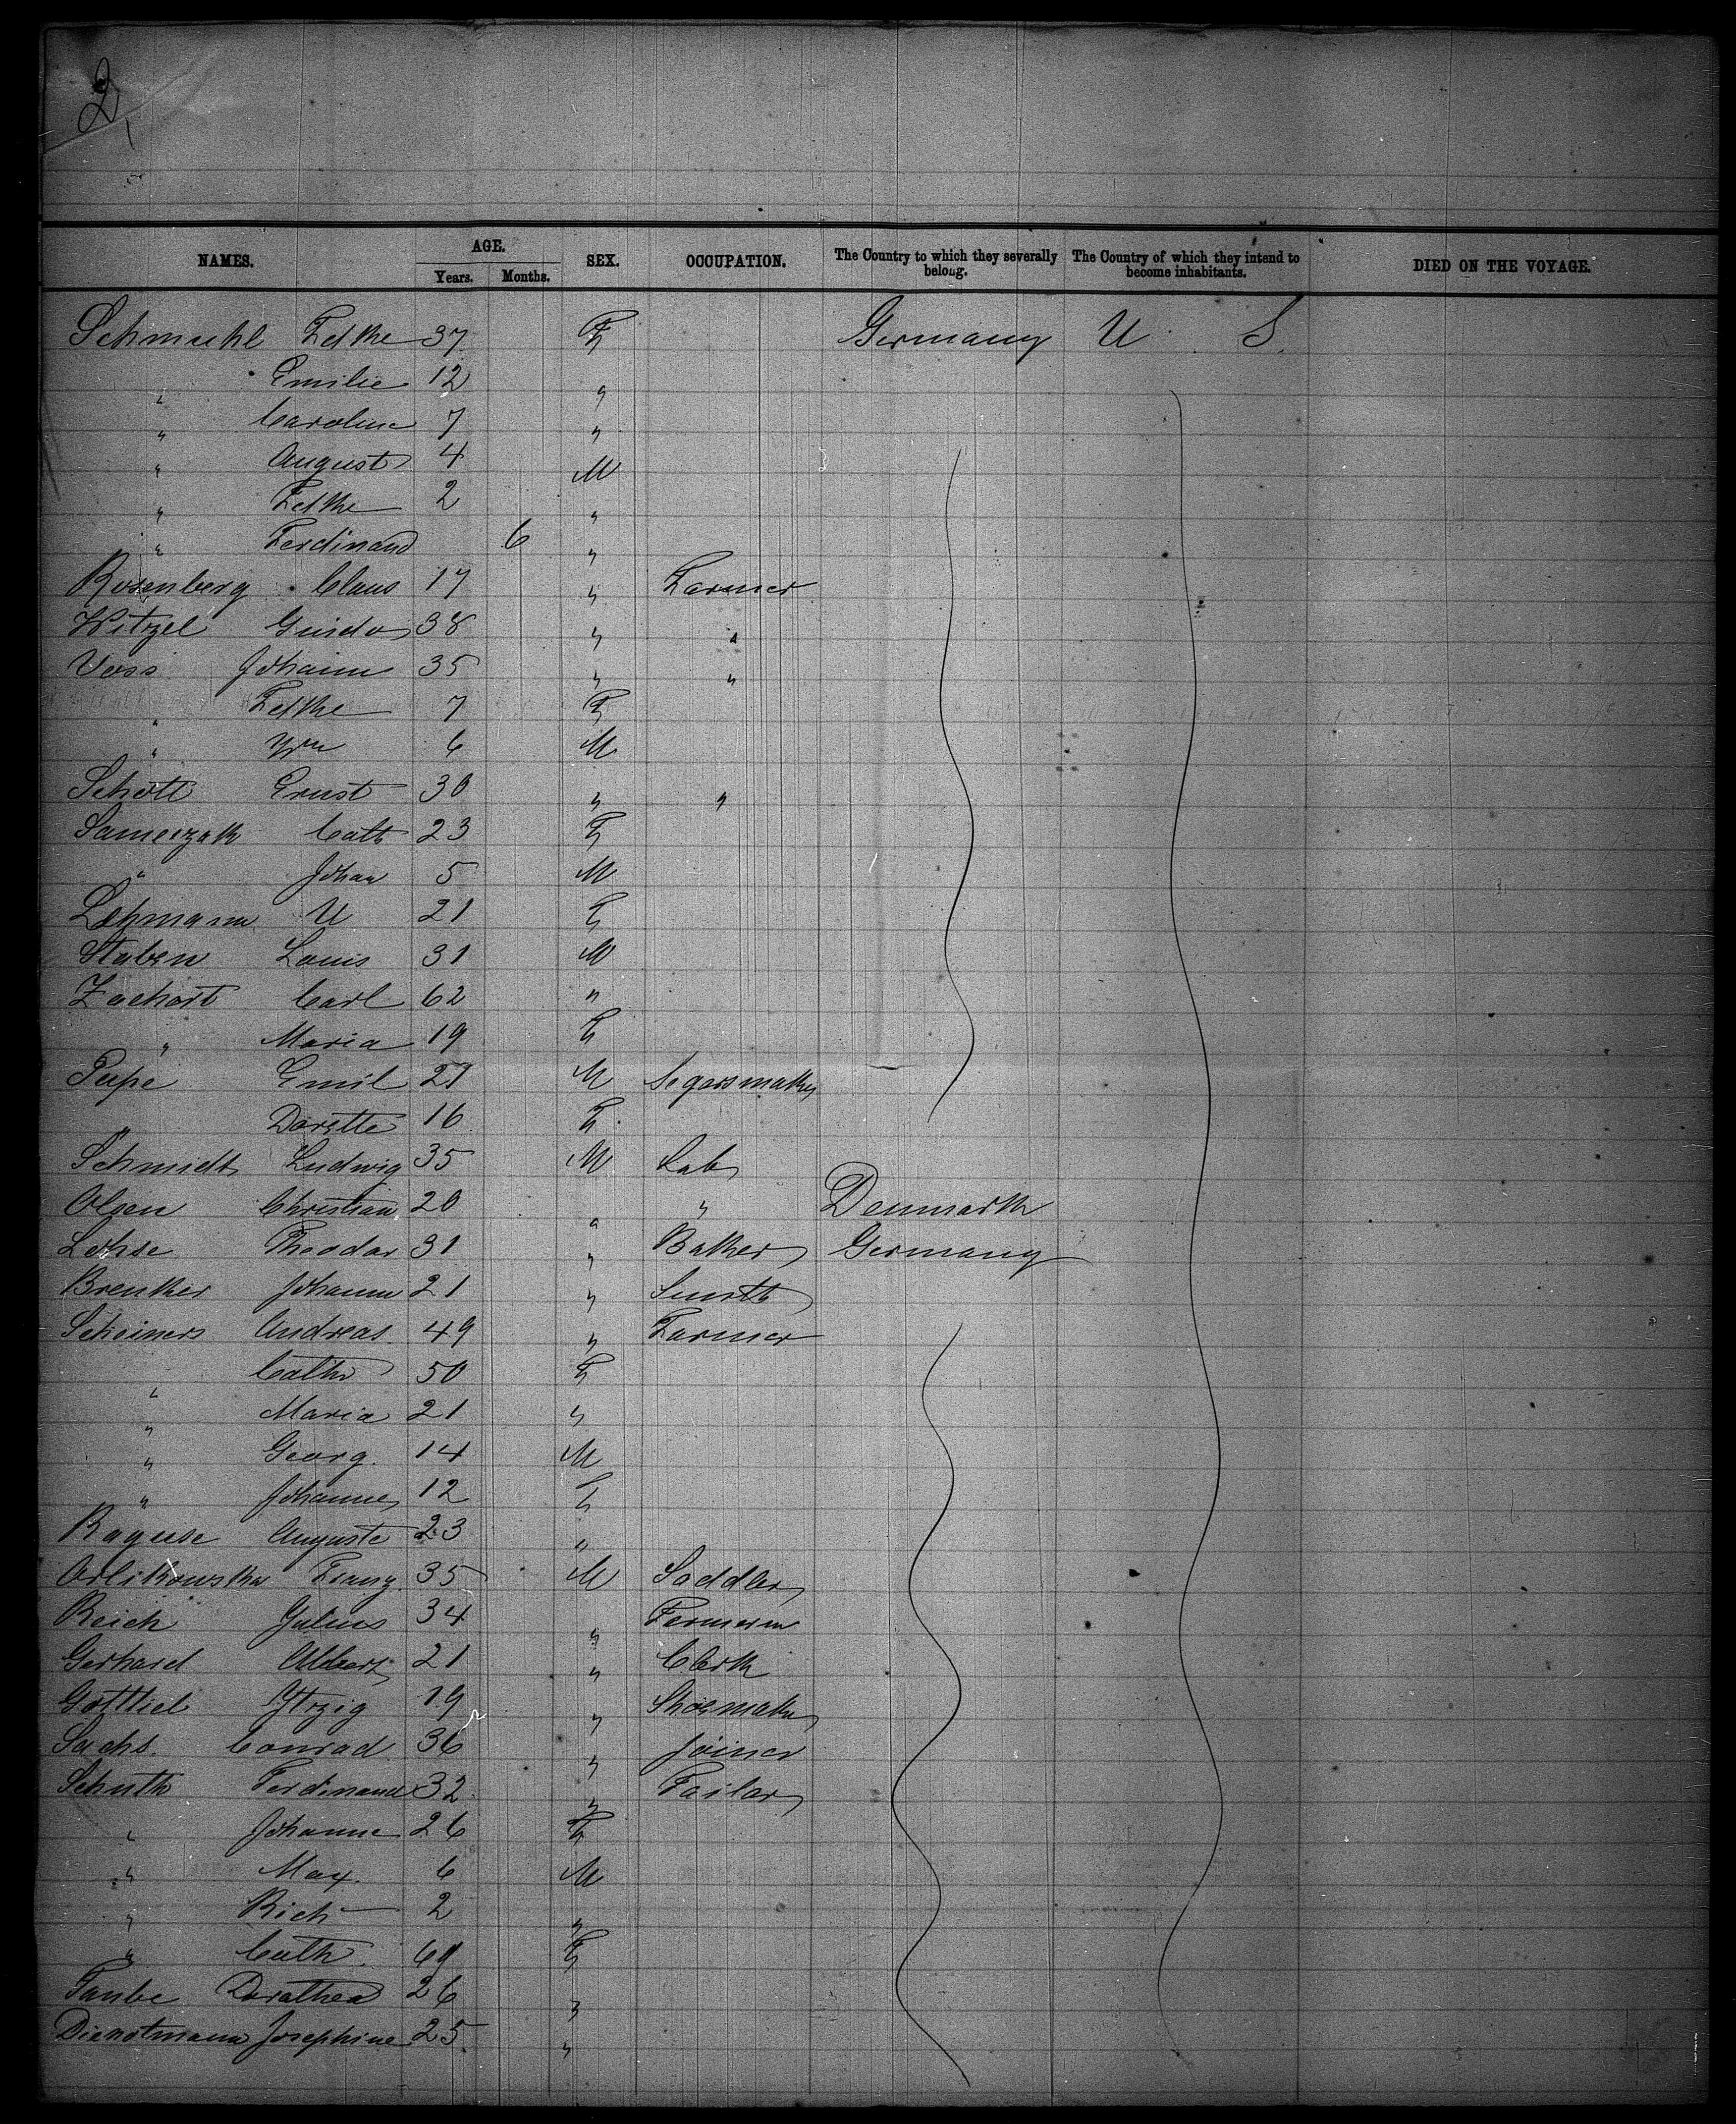 2,
NAMES. AGE. Years. Months. SEX. OCCUPATION. The Country to which they severally belong. The Country of which they intend to become inhabitants. DIED ON THE VOYAGE.
Schmuhl 37 F Germany U S.
" Emilie 12 "
" Caroline 7 "
" August 4 M
" 2 "
" Ferdinand 6 "
Rosenberg Claus 17 " Farmer
Witzel Guido 38 " "
Voss Johann 35 " "
" 7 F
" Wm 6 M
Schott Ernst 30 " "
Cath 23 F
" Johan 5 M
Lehmann U 21 F
Staben Louis 31 M
Zachart Carl 62 "
" Maria 19 F
Pape Emil 27 M Segarsmaker
" Dorette 16 F.
Schmidt Ludwig 35 M Lab
Olsen Christian 20 " " Denmark
Lohse Theodor 31 " Baker Germany
Brenker Johann 21 " Smith
Scheiners Andreas 49 " Farmer
" Cathr 50 F
" Maria 21 "
" Georg. 14 M
" Johanne 12 F
Raguse Auguste 23 "
Arlikowska Franz 35 M Saddler
Reich Julius 34 "
Gerhard Albert 21 " Clerk
Gottlieb Itzig 19 " Shoemaker
Sachs. Conrad 36 " Joiner
Schuth Ferdinand 32 " Tailor
" Johanne 26 F
" Max. 6 M
" Rich 2 "
" Cath. F
Taube Dorathea 26 "
Dienstmann Josephine 25 "